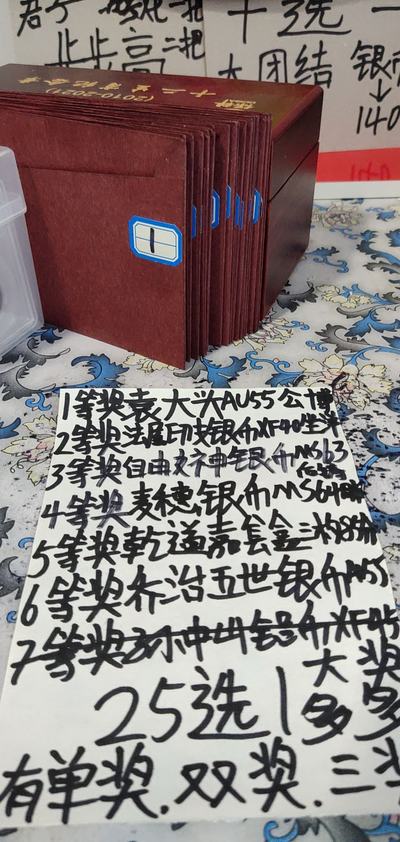 步步高 二把
十选一
大团结
银币
140
十二生肖纪念章
(2010-2021)
1
1等奖袁大头AU55公博
2等奖法属印支银币XF40坐洋
3等奖自由女神银币MS63
4等奖麦穗银币MS64
5等奖乾道嘉套金三
6等奖乔治五世银币
7等奖孙中山银币XF45
25选1
大奖
多多
有单奖.双奖.三奖